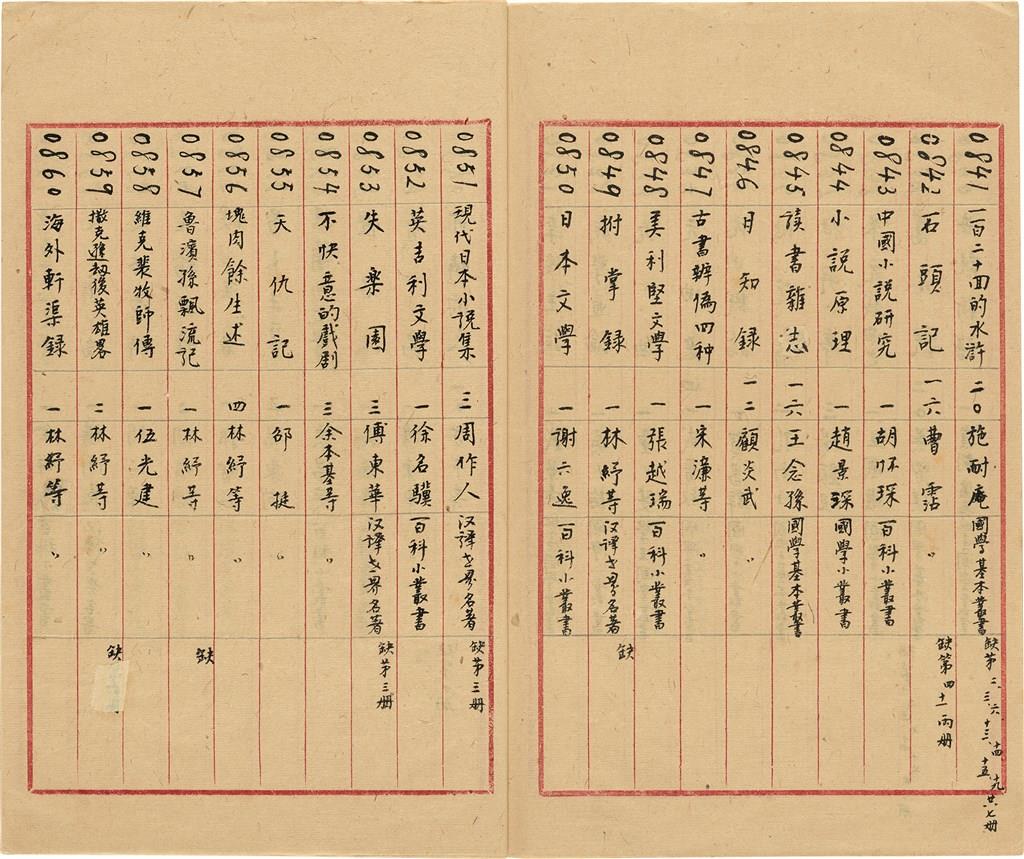 0841 一百二十回的水滸 二〇 施耐庵 國學基本叢書 缺第二、三、六、十三、十四、十五、十九、廿七册
0842 石頭記 一六 曹霑 〃 缺第四十一兩册
0843 中國小説研究 一 胡怀琛 百科小叢書
0844 小説原理 一 趙景琛 國學小叢書
0845 读書雜志 一六 王念孫 國學基本叢書
0846 日知録 一二 顧炎武 〃
0847 古書辨偽四种 一 宋濂等 〃
0848 美利堅文學 一 張越瑞 百科小叢書
0849 拊掌録 一 林紓等 汉譯世界名著 缺
0850 日本文學 一 谢六逸 百科小叢書
0851 現代日本小说集 三 周作人 汉譯世界名著 缺第三册
0852 英吉利文學 一 徐名驥 百科小叢書
0853 失楽園 三 傅東華 汉譯世界名著 缺第三册
0854 不快意的戲剧 三 余本基等 〃
0855 天仇記 一 邵挺 〃
0856 塊肉餘生述 四 林紓等 〃
0857 魯濱孫飄流記 一 林紓等 〃 缺
0858 維克裴牧師傳 一 伍光建 〃
0859 撒克遜劫後英雄畧 二 林紓等 〃 缺
0860 海外軒渠録 一 林紓等 〃